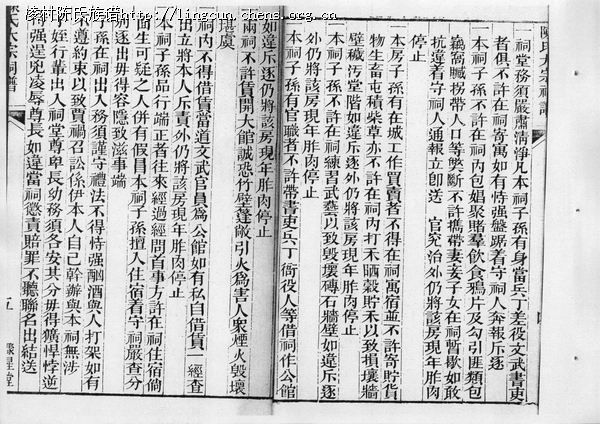 凌村陈氏族谱 http://lingcun.chens.org.cn
陳氏大宗祠譜
一祠堂務須嚴肅清淨凡本祠子孫有身當兵丁差役文武書吏
者俱不許在祠寄寓如有恃强盤踞着守祠人奔報斥逐
一本祠子孫不許在祠內包娼聚賭羣飲食鴉片及勾引匪類包
竊窩贓拐帶人口等獘斷不許攜帶妻妾子女在祠暫歇如敢
抗違着守祠人通報立卽送 官究治外仍將該房現年胙肉
停止
一本房子孫有在城工作買賣者不得在祠寓宿並不許寄貯貨
物生畜屯積柴草亦不許在祠內打禾晒穀貯禾以致損壞牆
壁穢汚堂階如違斥逐外仍將該房現年胙肉停止
一本祠子孫不許在祠練習武藝以致毀壞磚石牆壁如違斥逐
外仍將該房現年胙肉停止
一本祠子孫有官職者不許帶書吏兵丁衙役人等借祠作公館
如違斥逐仍將該房現年胙肉停止
一兩祠不許賃開大館誠恐竹壁蓬敞引火爲害人衆煙火毀壞
堪虞
一祠內不得借賃當道文武官員爲公館如有私自借賃一經查
出立將本人斥責外仍將該房現年胙肉停止
一祠子孫品行端正者往來經過經問首事方許在祠住宿倘
面生可疑之人併有假冒本祠子孫擅人住宿着守祠嚴查分
別逐出毋得容隱致滋事端
一子孫在祠出入務須謹守禮法不得恃强酗酒與人打架如有
不遵約束以致賈禍召訟係伊本人自己幹辦與本祠無涉
一姪行輩出入祠堂尊卑長幼務須各安其分毋得獷悍悖逆
强逞兇凌辱尊長如違當祠懲責賠罪不聽聯名出結送